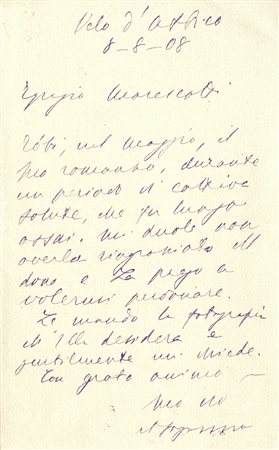 Velo d'Astico
8-8-08
Egregio Marescotti
Ebbi, nel maggio, il
Suo romanzo, durante
un periodo di cattiva
salute, che fu lungo
assai. Mi duole non
averla ringraziato del
dono e La prego a
volermi perdonare.
Le mando la fotografia
ch'Ella desidera e
gentilmente mi chiede.
Con grato animo
Suo